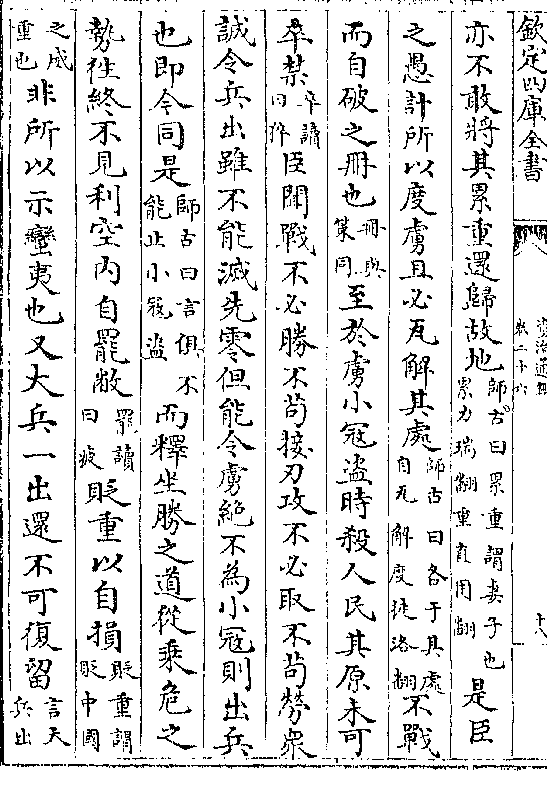 欽定四庫全書
資治通鑑
卷二十六
十八
亦不敢將其累重還歸故地師古曰累重謂妻子也累力瑞翻重直用翻是臣
之愚計所以度虜且必瓦解其處師古曰各于其處自瓦解度徒洛翻不戰
而自破之冊也冊與策同至於虜小冦盜時殺人民其原未可
卒禁卒讀曰猝臣聞戰不必勝不茍接刃攻不必取不茍勞衆
誠令兵出雖不能滅先零但能令虜絶不為小冦則出兵
也即今同是師古曰言俱不能止小冦盜而釋坐勝之道從乗危之
勢徃終不見利空内自罷敝罷讀曰疲貶重以自損貶重謂貶中國
之威重也非所以示蠻夷也又大兵一出還不可復留言大兵出